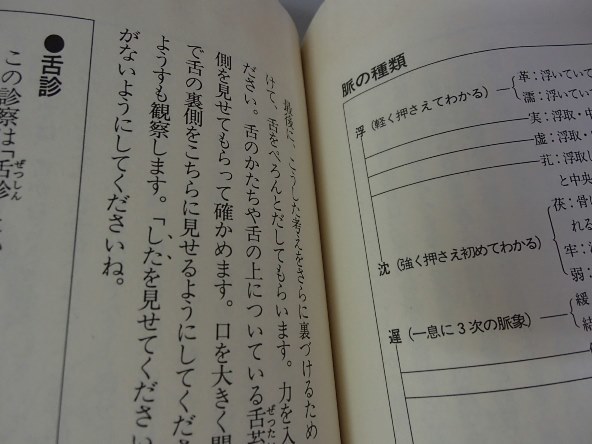 最後に、こうした考えをさらに裏づけるため
けて、舌をぺろんとだしてもらいます。力を入
ださい。舌のかたちや舌の上についている舌苔
ぜったい
側を見せてもらって確かめます。口を大きく開
で舌の裏側をこちらに見せるようにしてくださ
ようすも観察します。「したを見せてください
がないようにしてくださいね。
●舌診
この診察は「舌診
ぜっしん
脈の種類
浮(軽く押さえてわかる)
革:浮いてい
濡:浮いてい
実:浮取・中
虚:浮取・
芤:浮取し
と中央
沈(強く押さえ初めてわかる)
茯:骨
れる
牢:
弱:
遅(一息に3次の脈象)
緩
結